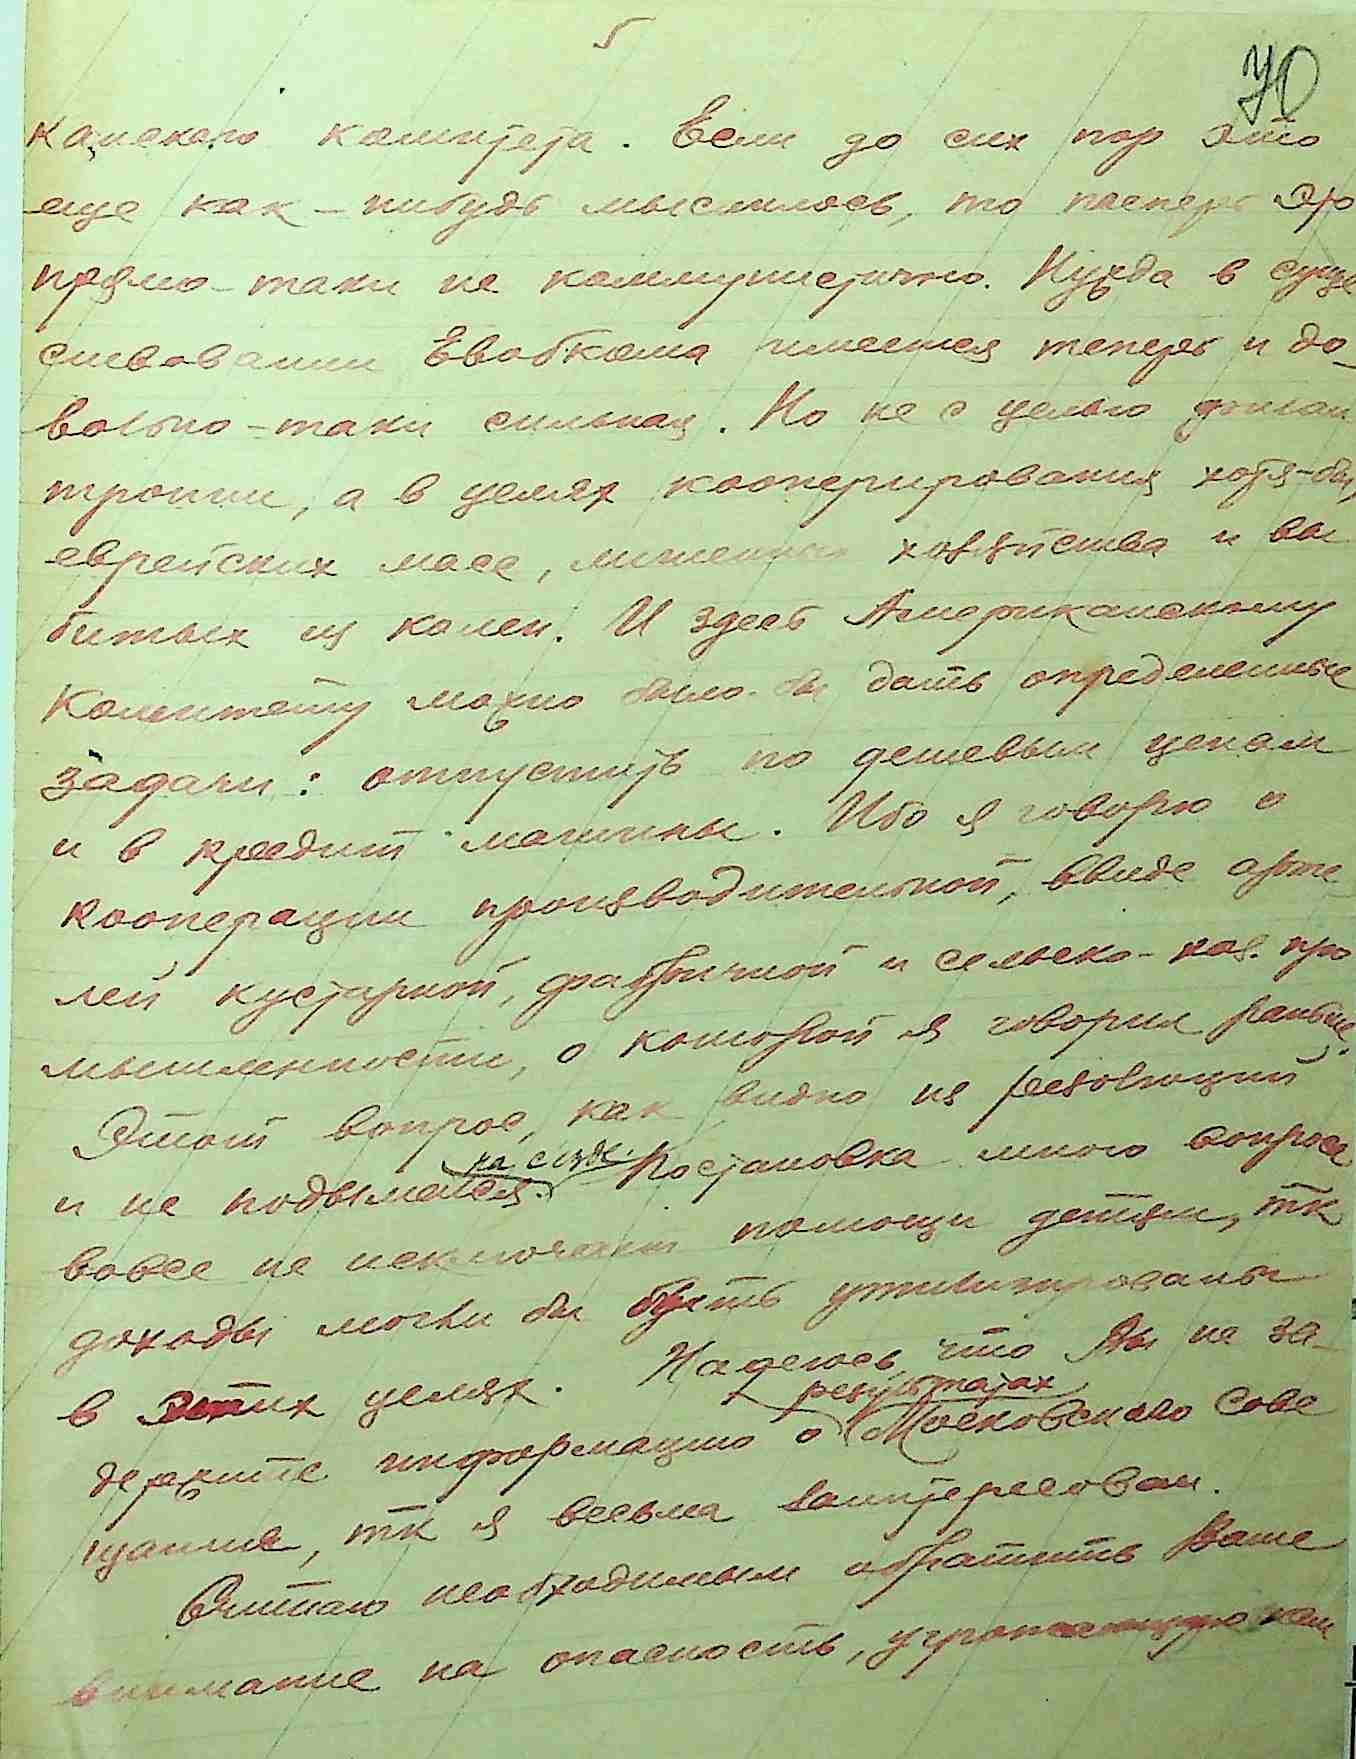 5
70
канского комитета. Если до сих пор это
еще как-нибудь мыслилось, то теперь это
прямо-таки не коммунистично. Нужда в суще
ствовании Евобкома имеется теперь и до-
вольно-таки сильная. Но не с целью филан
тропии, а в целях кооперирования хотя-бы,
еврейских масс, лишенных хозяйства и вы
битых из колеи. И здесь Американскому
Комитету можно было-бы дать определенные
задачи: отпустить по дешевым ценам
и в кредит машины. Ибо я говорю о
кооперации производительной, ввиде арте
лей кустарной, фабричной и сельско-хоз. про
мышленности, о которой я говорил раньше.
Этот вопрос, как видно из резолюций
на с'езде.
и не подымался. Постановка мною вопроса
вовсе не исключает помощи детям, тк
доходы могли бы быть утилизированы
в этих целях. Надеюсь, что Вы не за-
результатах
держите информацию о Московского Сове
щания, тк я весьма заинтересован.
Считаю необходимым обратить Ваше
внимание на опасность, угрожающую нам